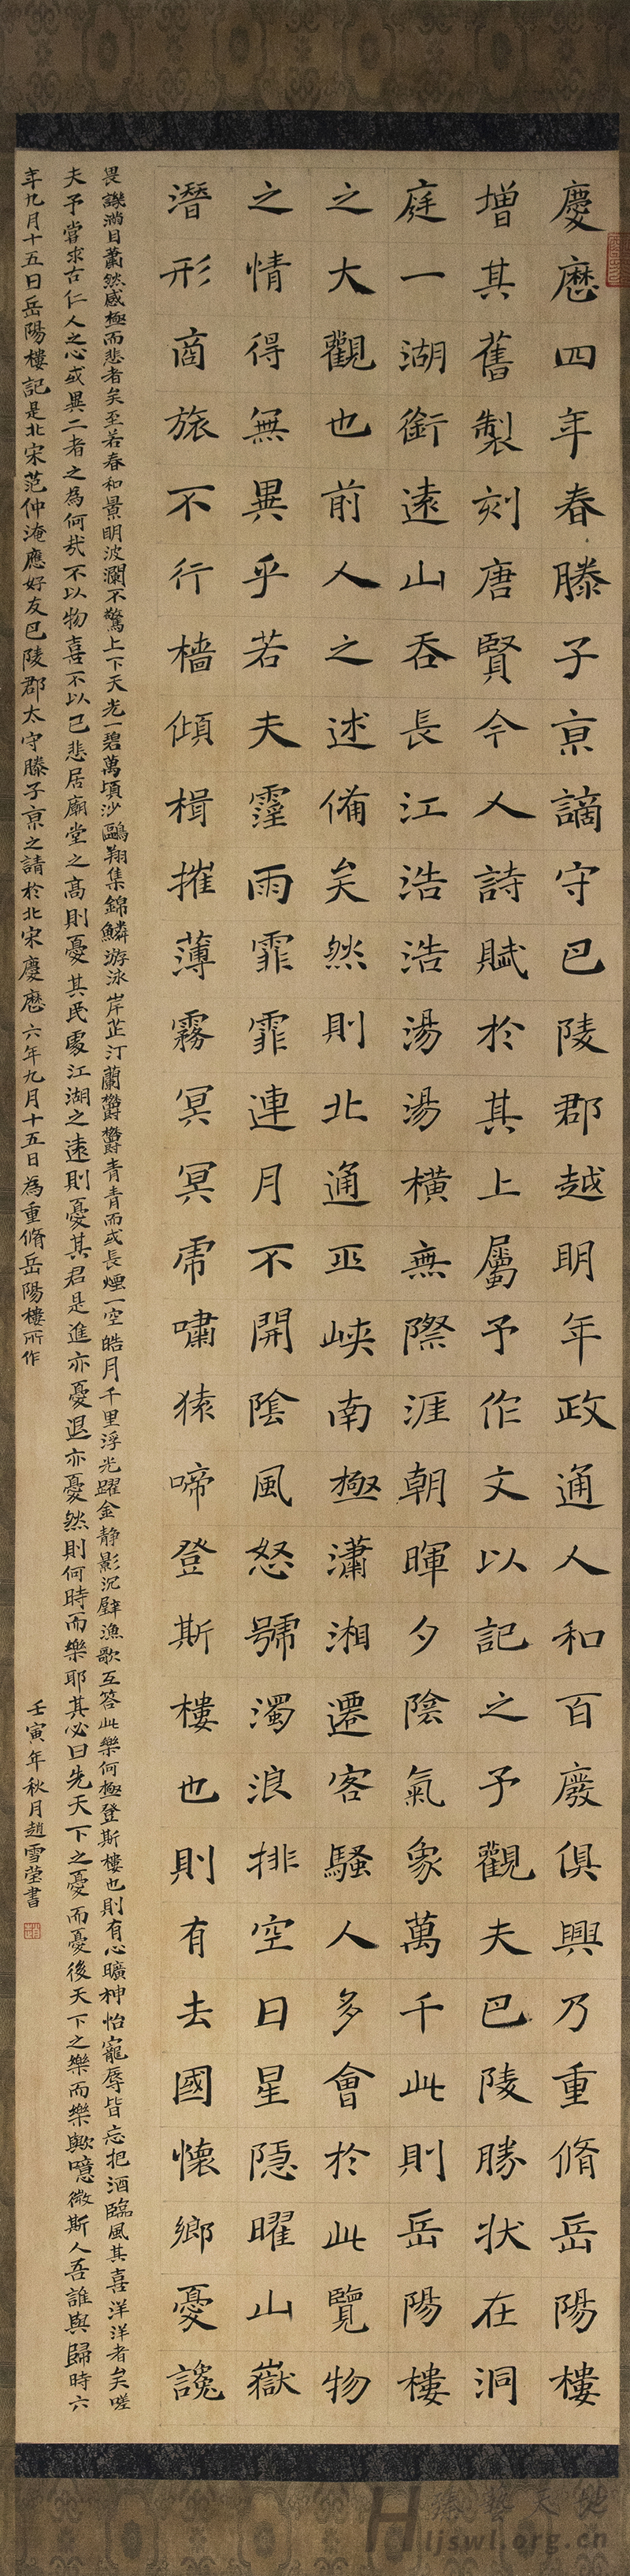 慶曆四年春滕子京謫守巴陵郡越明年政通人和百廢俱興乃重脩岳陽樓
增其舊製刻唐賢今人詩賦於其上屬予作文以記之予觀夫巴陵勝狀在洞
庭一湖銜遠山吞長江浩浩湯湯橫無際涯朝暉夕陰氣象萬千此則岳陽樓
之大觀也前人之述備矣然則北通巫峽南極瀟湘遷客騷人多會於此覽物
之情得無異乎若夫霪雨霏霏連月不開陰風怒號濁浪排空日星隱曜山嶽
潛形商旅不行檣傾楫摧薄霧冥冥虎嘯猿啼登斯樓也則有去國懷鄉憂讒
畏譏滿目蕭然感極而悲者矣至若春和景明波瀾不驚上下天光一碧萬頃沙鷗翔集錦鱗游泳岸芷汀蘭欝欝青青而或長煙一空皓月千里浮光躍金静影沉壁漁歌互答此樂何極登斯樓也則有心曠神怡寵辱皆忘把酒臨風其喜洋洋者矣嗟
夫予嘗求古仁人之心或異二者之為何哉不以物喜不以己悲居廟堂之高則憂其民處江湖之遠則憂其君是進亦憂退亦憂然則何時而樂耶其必曰先天下之憂而憂後天下之樂而樂歟噫微斯人吾誰與歸時六
年九月十五日岳陽樓記是北宋范仲淹應好友巴陵郡太守滕子京之請於北宋慶曆六年九月十五日為重脩岳陽樓所作
壬寅年秋月趙雪瑩書
ljswl.org.cn